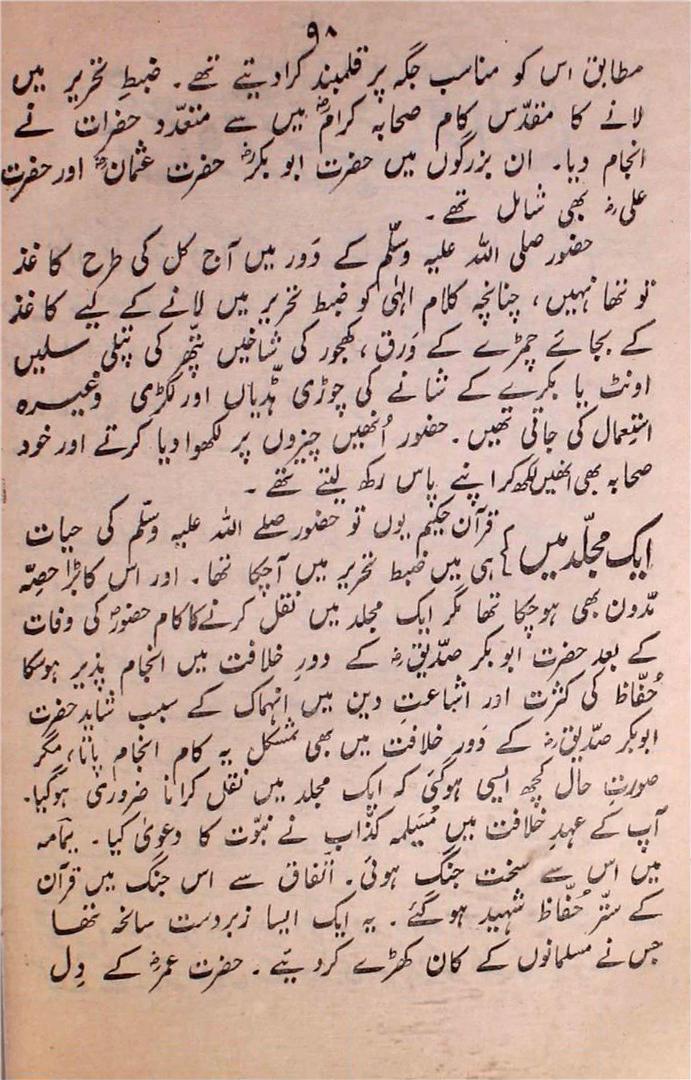 ۹۸
مطابق اس کو مناسب جگہ پر قلمبند کرا دیتے تھے۔ ضبطِ تحریر میں
لانے کا مقدّس کام صحابہ کرامؓ میں سے متعدّد حضرات نے
انجام دیا۔ ان بزرگوں میں حضرت ابو بکرؓ حضرت عثمانؓ اور حضرت
علیؓ بھی شامل تھے۔
حضور صلی اللہ علیہ وسلّم کے دَور میں آج کل کی طرح کاغذ
تو تھا نہیں، چنانچہ کلام الٰہی کو ضبط تحریر میں لانے کے لیے کاغذ
کے بجائے چمڑے کے وَرق، کھجور کی شاخیں پتّھر کی پتلی سلیں
اونٹ یا بکرے کے شانے کی چوڑی ہڈیاں اور لکڑی وغیرہ
استعمال کی جاتی تھیں۔ حضور اُنھیں چیزوں پر لکھوا دیا کرتے اور خود
صحابہ بھی انھیں لکھ کر اپنے پاس رکھ لیتے تھے۔
ایک مجلّد میں } قرآن حکیم یوں تو حضور صلے اللہ علیہ وسلّم کی حیات
ہی میں ضبط تحریر میں آچکا تھا۔ اور اس کا بڑا حصّہ
مدّون بھی ہوچکا تھا مگر ایک مجلد میں نقل کرنے کا کام حضورؐ کی وفات
کے بعد حضرت ابو بکر صدّیقؓ کے دورِ خلافت میں انجام پذیر ہوسکا
حُفّاظ کی کثرت اور اشاعتِ دین میں انہماک کے سبب شاید حضرت
ابوبکر صدّیقؓ کے دَور خلافت میں بھی مشکل یہ کام انجام پاتا، مگر
صورتِ حال کچھ ایسی ہوگئی کہ ایک مجلد میں نقل کرانا ضروری ہوگیا۔
آپ کے عہدِ خلافت میں مُسَیلمہ کذّاب نے نبوّت کا دعویٰ کیا۔ یمامہ
میں اس سے سخت جنگ ہوئی۔ اتفاق سے اس جنگ میں قرآن
کے ستّر حُفّاظ شہید ہوگئے۔ یہ ایک ایسا زبردست سانحہ تھا
جس نے مسلمانوں کے کان کھڑے کردیئے۔ حضرت عمرؓ کے دِل